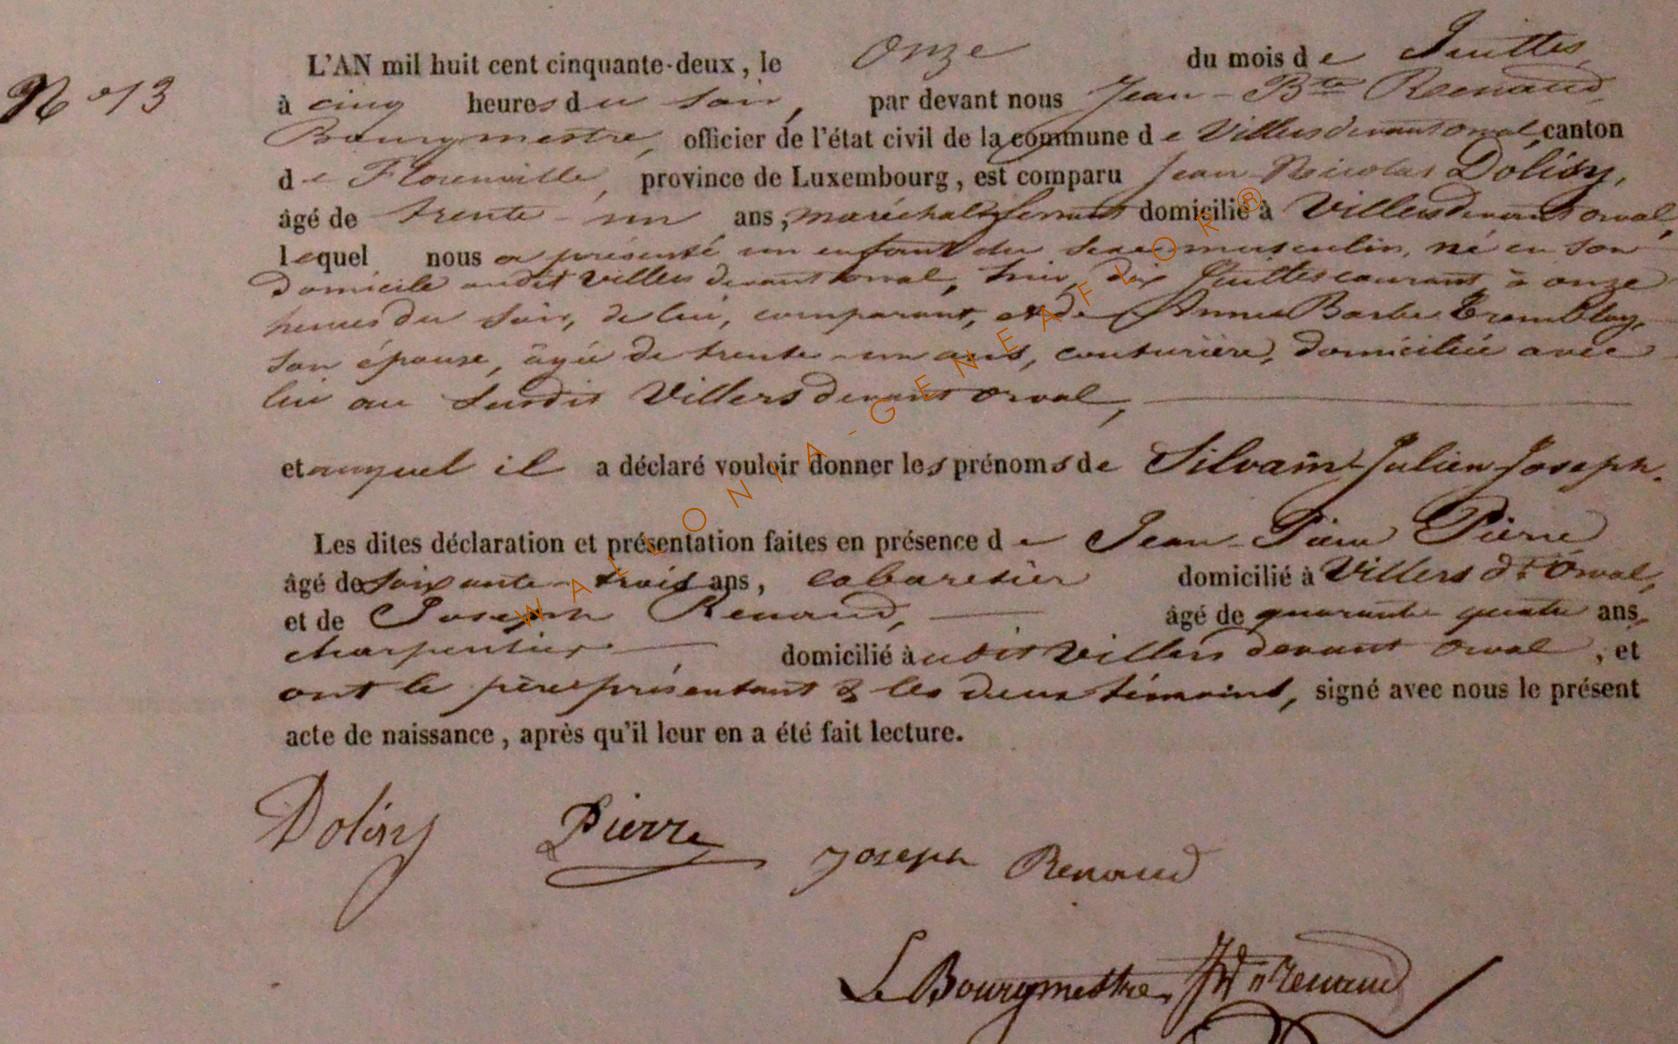 N° 13
L'AN mil huit cent cinquante-deux, le onze du mois de Juillet,
à cinq heures du soir, par devant nous Jean-Bte Renaud,
Bourgmestre, officier de l'état civil de la commune de Villers devant orval, canton
de Florenville, province de Luxembourg, est comparu Jean Nicolas Dolisy,
âgé de trente-un ans, maréchal ferrant domicilié à Villers devant orval,
lequel nous a présenté un enfant du sexe masculin, né en son
domicile audit Villers devant orval, hier, dix Juillet courant, à onze
heures du soir, de lui, comparant, et de Anne Barbe Tremblay,
son épouse, âgée de trente-un ans, couturière, domiciliée avec
lui au susdit Villers devant orval,
et auquel il a déclaré vouloir donner les prénoms de Silvain-Julien-Joseph.
Les dites déclaration et présentation faites en présence de Jean-Pierre Pierre
âgé de soixante-trois ans, cabaretier domicilié à Villers dt Orval,
et de Joseph Renaud, âgé de quarante quatre ans,
charpentier domicilié audit Villers devant orval, et
ont le père présentant & les deux témoins, signé avec nous le présent
acte de naissance, après qu'il leur en a été fait lecture.
Dolisy Pierre Joseph Renaud
Le Bourgmestre, Renaud
WALLONIA-GENEAFLOR®